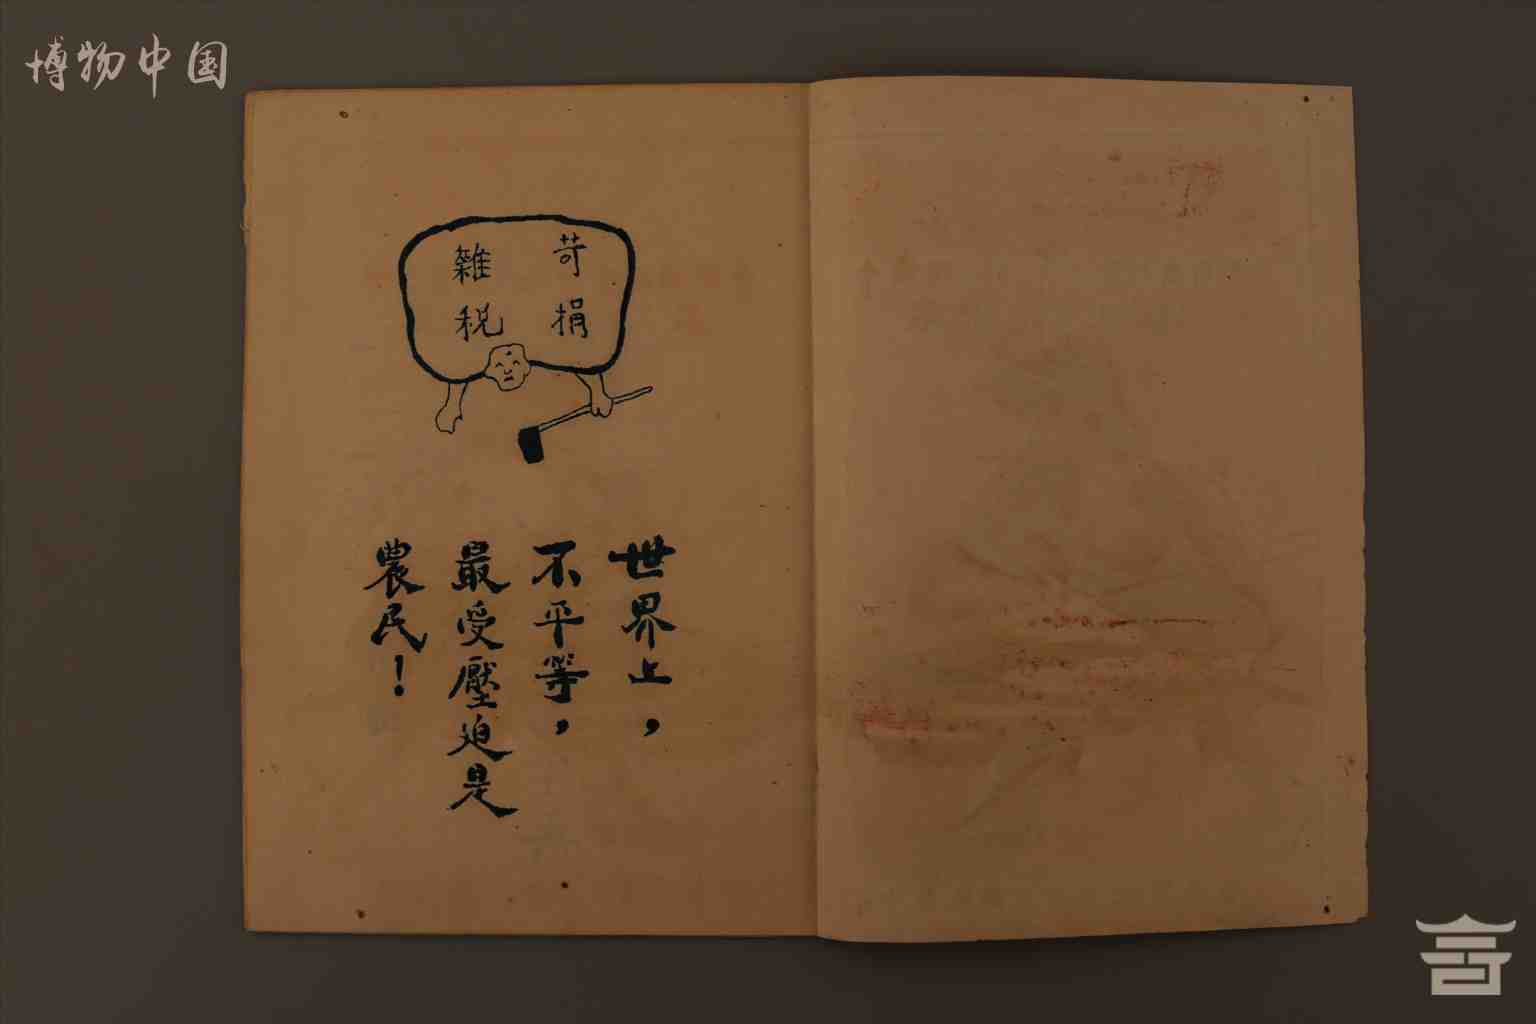 博物中国
苛捐
雜税
世界上，
不平等，
最受壓迫是
農民！